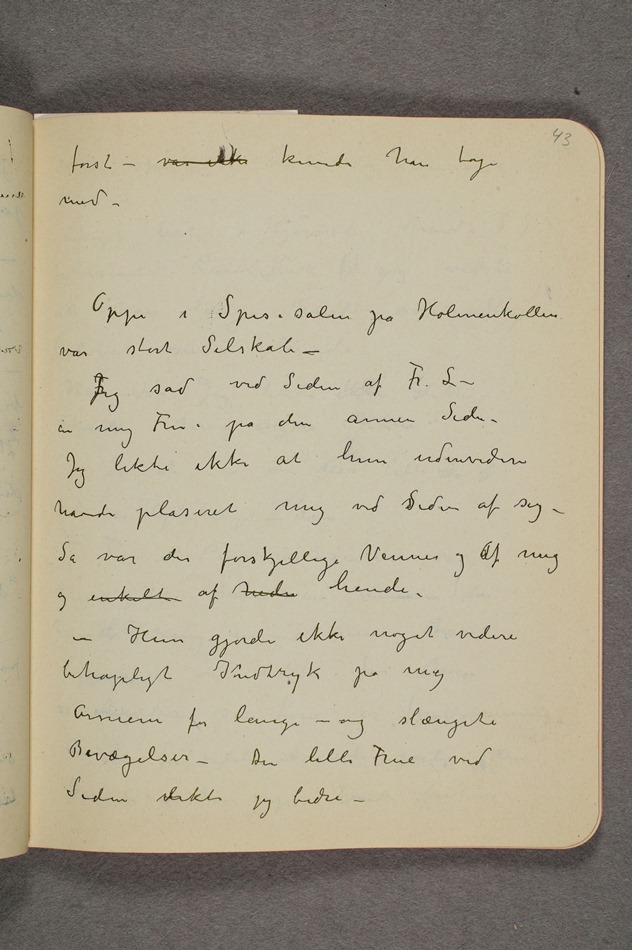 43
först – var ikke kunde han tage
med –
Oppe i Spisesalen på Holmenkollen
var stort Selskab –
Jeg sad ved Siden af Fr. L –
en ung Frue på den annen Side –
Jeg likte ikke at hun udenvidere
havde plaseret mig ved Siden af sig –
Så var der forskjellige Venner og af mig
og enkelte af hende hende.
– Hun gjorde ikke noget videre
behageligt Indtryk på mig
Armene for lange – og slængete
Bevægelser – Den lille Frue ved
Siden likte jeg bedre –